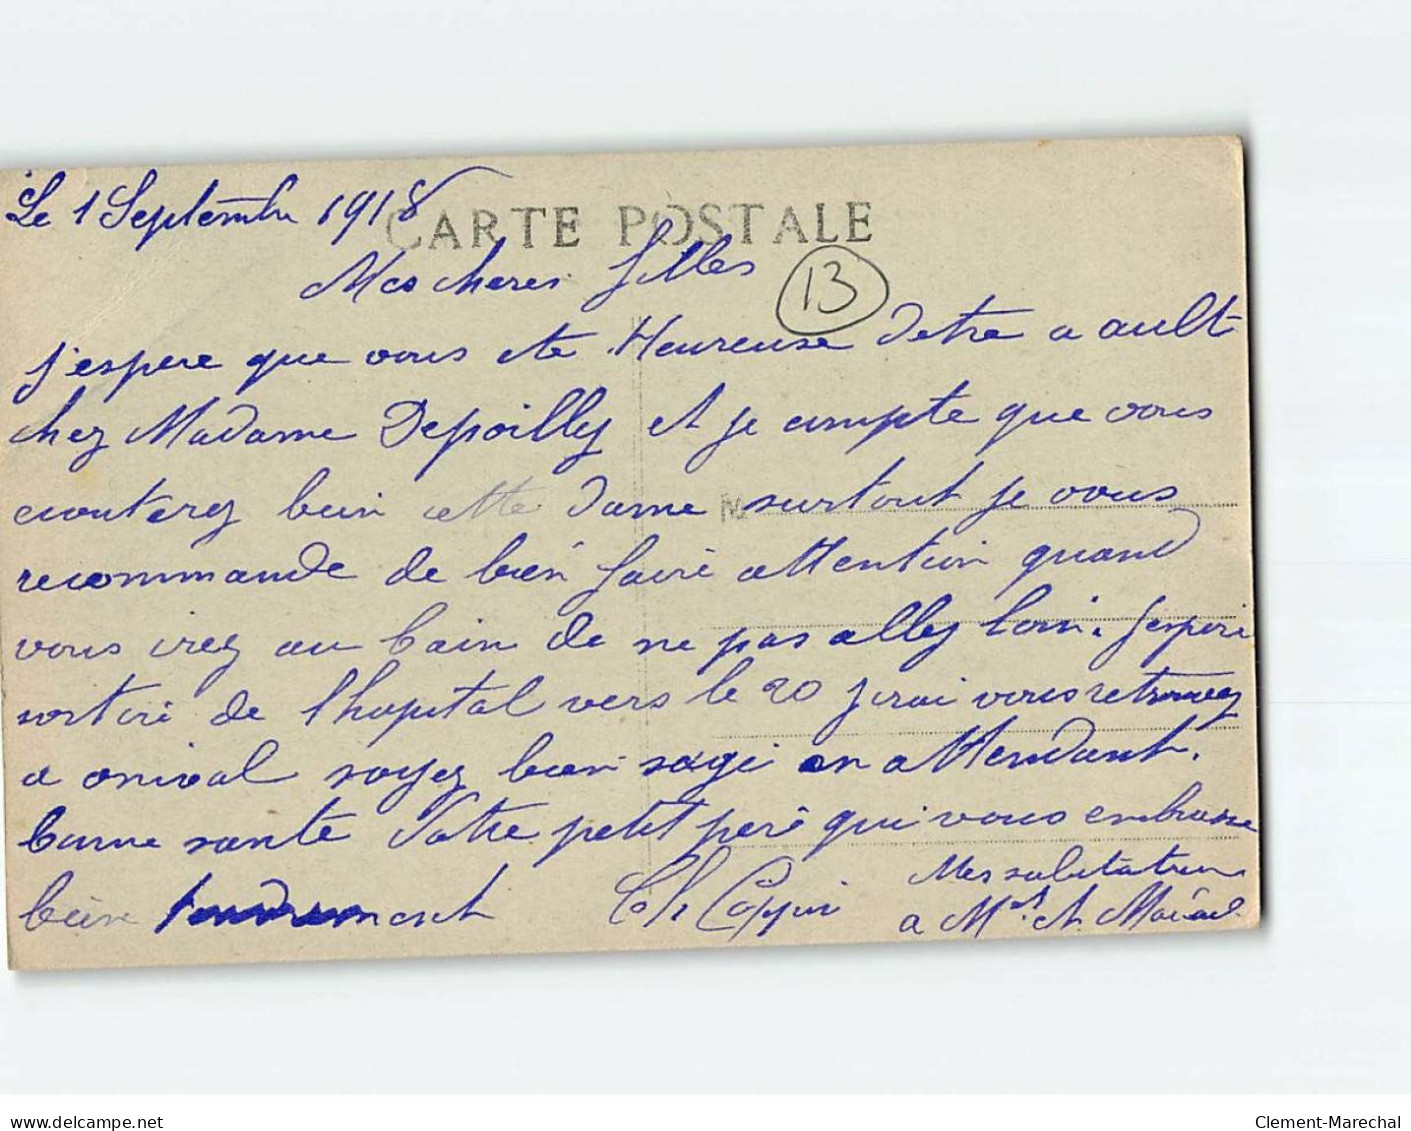 Le 1 Septembre 1918
CARTE POSTALE
Mes cheres filles
13
j'espere que vous ete Heureuse d'etre a ault
chez Madame Depoilly et je compte que vous
ecouterez bien cette dame surtout je vous
recommande de bien faire attention quand
vous irez au bain de ne pas allez loin. J'espere
sortire de l'hopital vers le 20 j'irai vous retrouvez
a onival soyez bien sage en attendant.
bonne santé Votre petit pere qui vous embrasse
bien tendrement Ch Coppin
Mes salutation
a Mr et
Clement-Marechal
delcampe.net